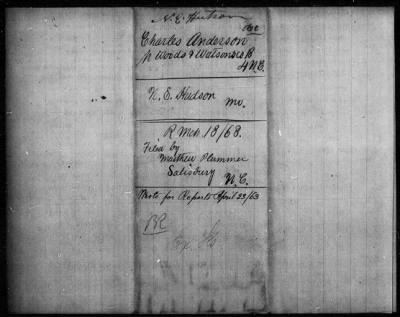 N. E. Hutson
Charles Anderson
N Woods & Watsons
4 N.C.
N. E. Hudson mo.
R Mch. 18/68.
Filed by
Matthew Plummer
Salisbury N.C.
Wrote for Reports April 23/63
BR